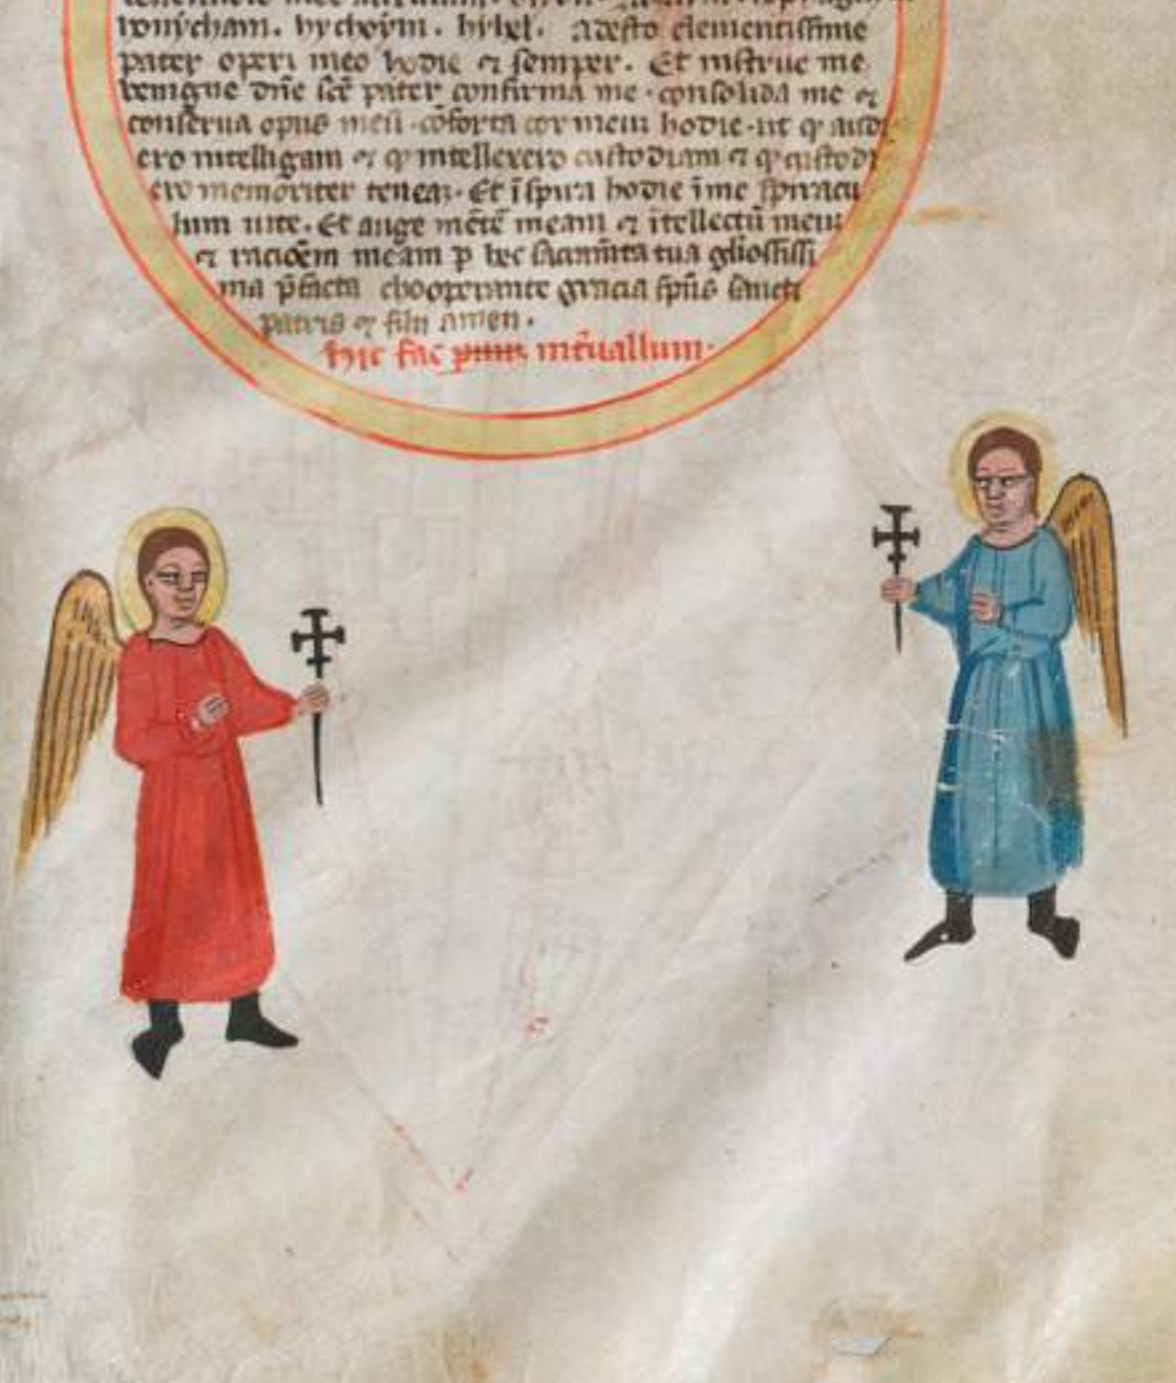 wnÿcham. hychoÿm. hyhel. adesto clementissime
pater operi meo hodie ⁊ semper. Et instrue me
benigne dñe scē pater confirma me · consolida me ⁊
conserua opus meū · cōforta cor meum hodie · ut q̄ audi
ero intelligam ⁊ q̄ intellexero custodiam ⁊ q̄ custodi
ero memoriter teneaꝫ · Et īspira hodie īme spiracu
lum uite. Et auge mētē meam ⁊ ītellectū meum
⁊ racōem meam p hec sacam̄ta tua gl̄iosissi
ma p̄facta chooperante gracia sp̄ūs sancti
patris ⁊ filii amen.
hic fac int̄uallum.